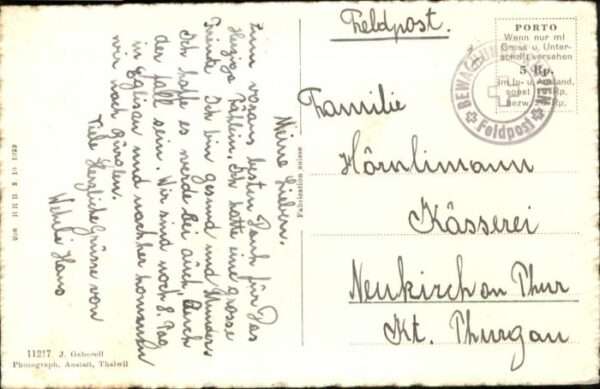 Feldpost.
PORTO
Wenn nur mit
Gruss u. Unter-
schrift versehen
5 Rp.
im In- u. Ausland,
sonst Rp.
bezw. Rp.
BEWACHUNG
Feldpost
Familie
Hörnlimann
Kässerei
Neukirch an Thur
Kt. Thurgau
Meine Lieben.
Zum voraus besten Dank für das
Herzige Päcklein. Ich hatte eine grosse
Freude. Ich bin gesund und Munder
Ich hoffe es werde bei auch, auch
der fall sein. Wir sind noch 8. Tag
in Eglisau und nachher kommen
wir nach Bürglen.
Viele Herzliche Grüsse von
Wehrli Hans
Fabrication suisse
11217 J. Gaberell
Photograph. Anstalt, Thalwil